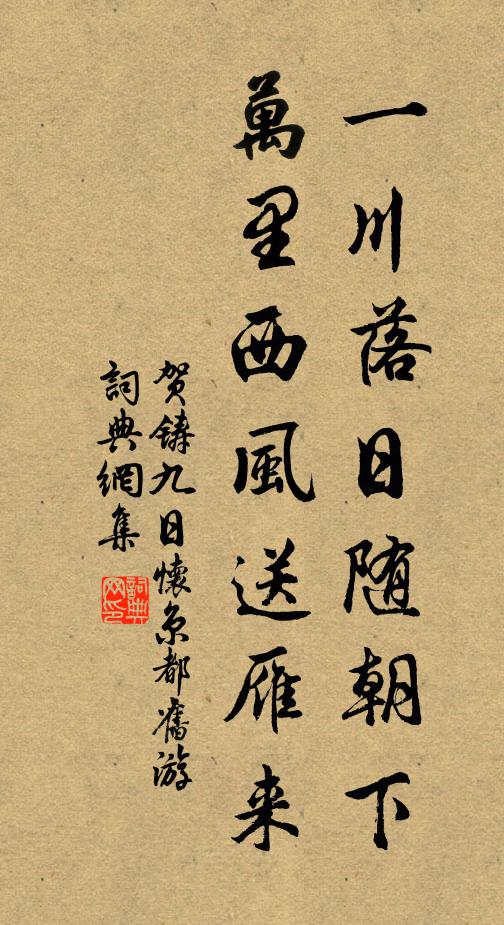 一川落日随朝下
萬里西風送雁来
贺鑄九日懷京都舊游
詞典網集
詞典网印